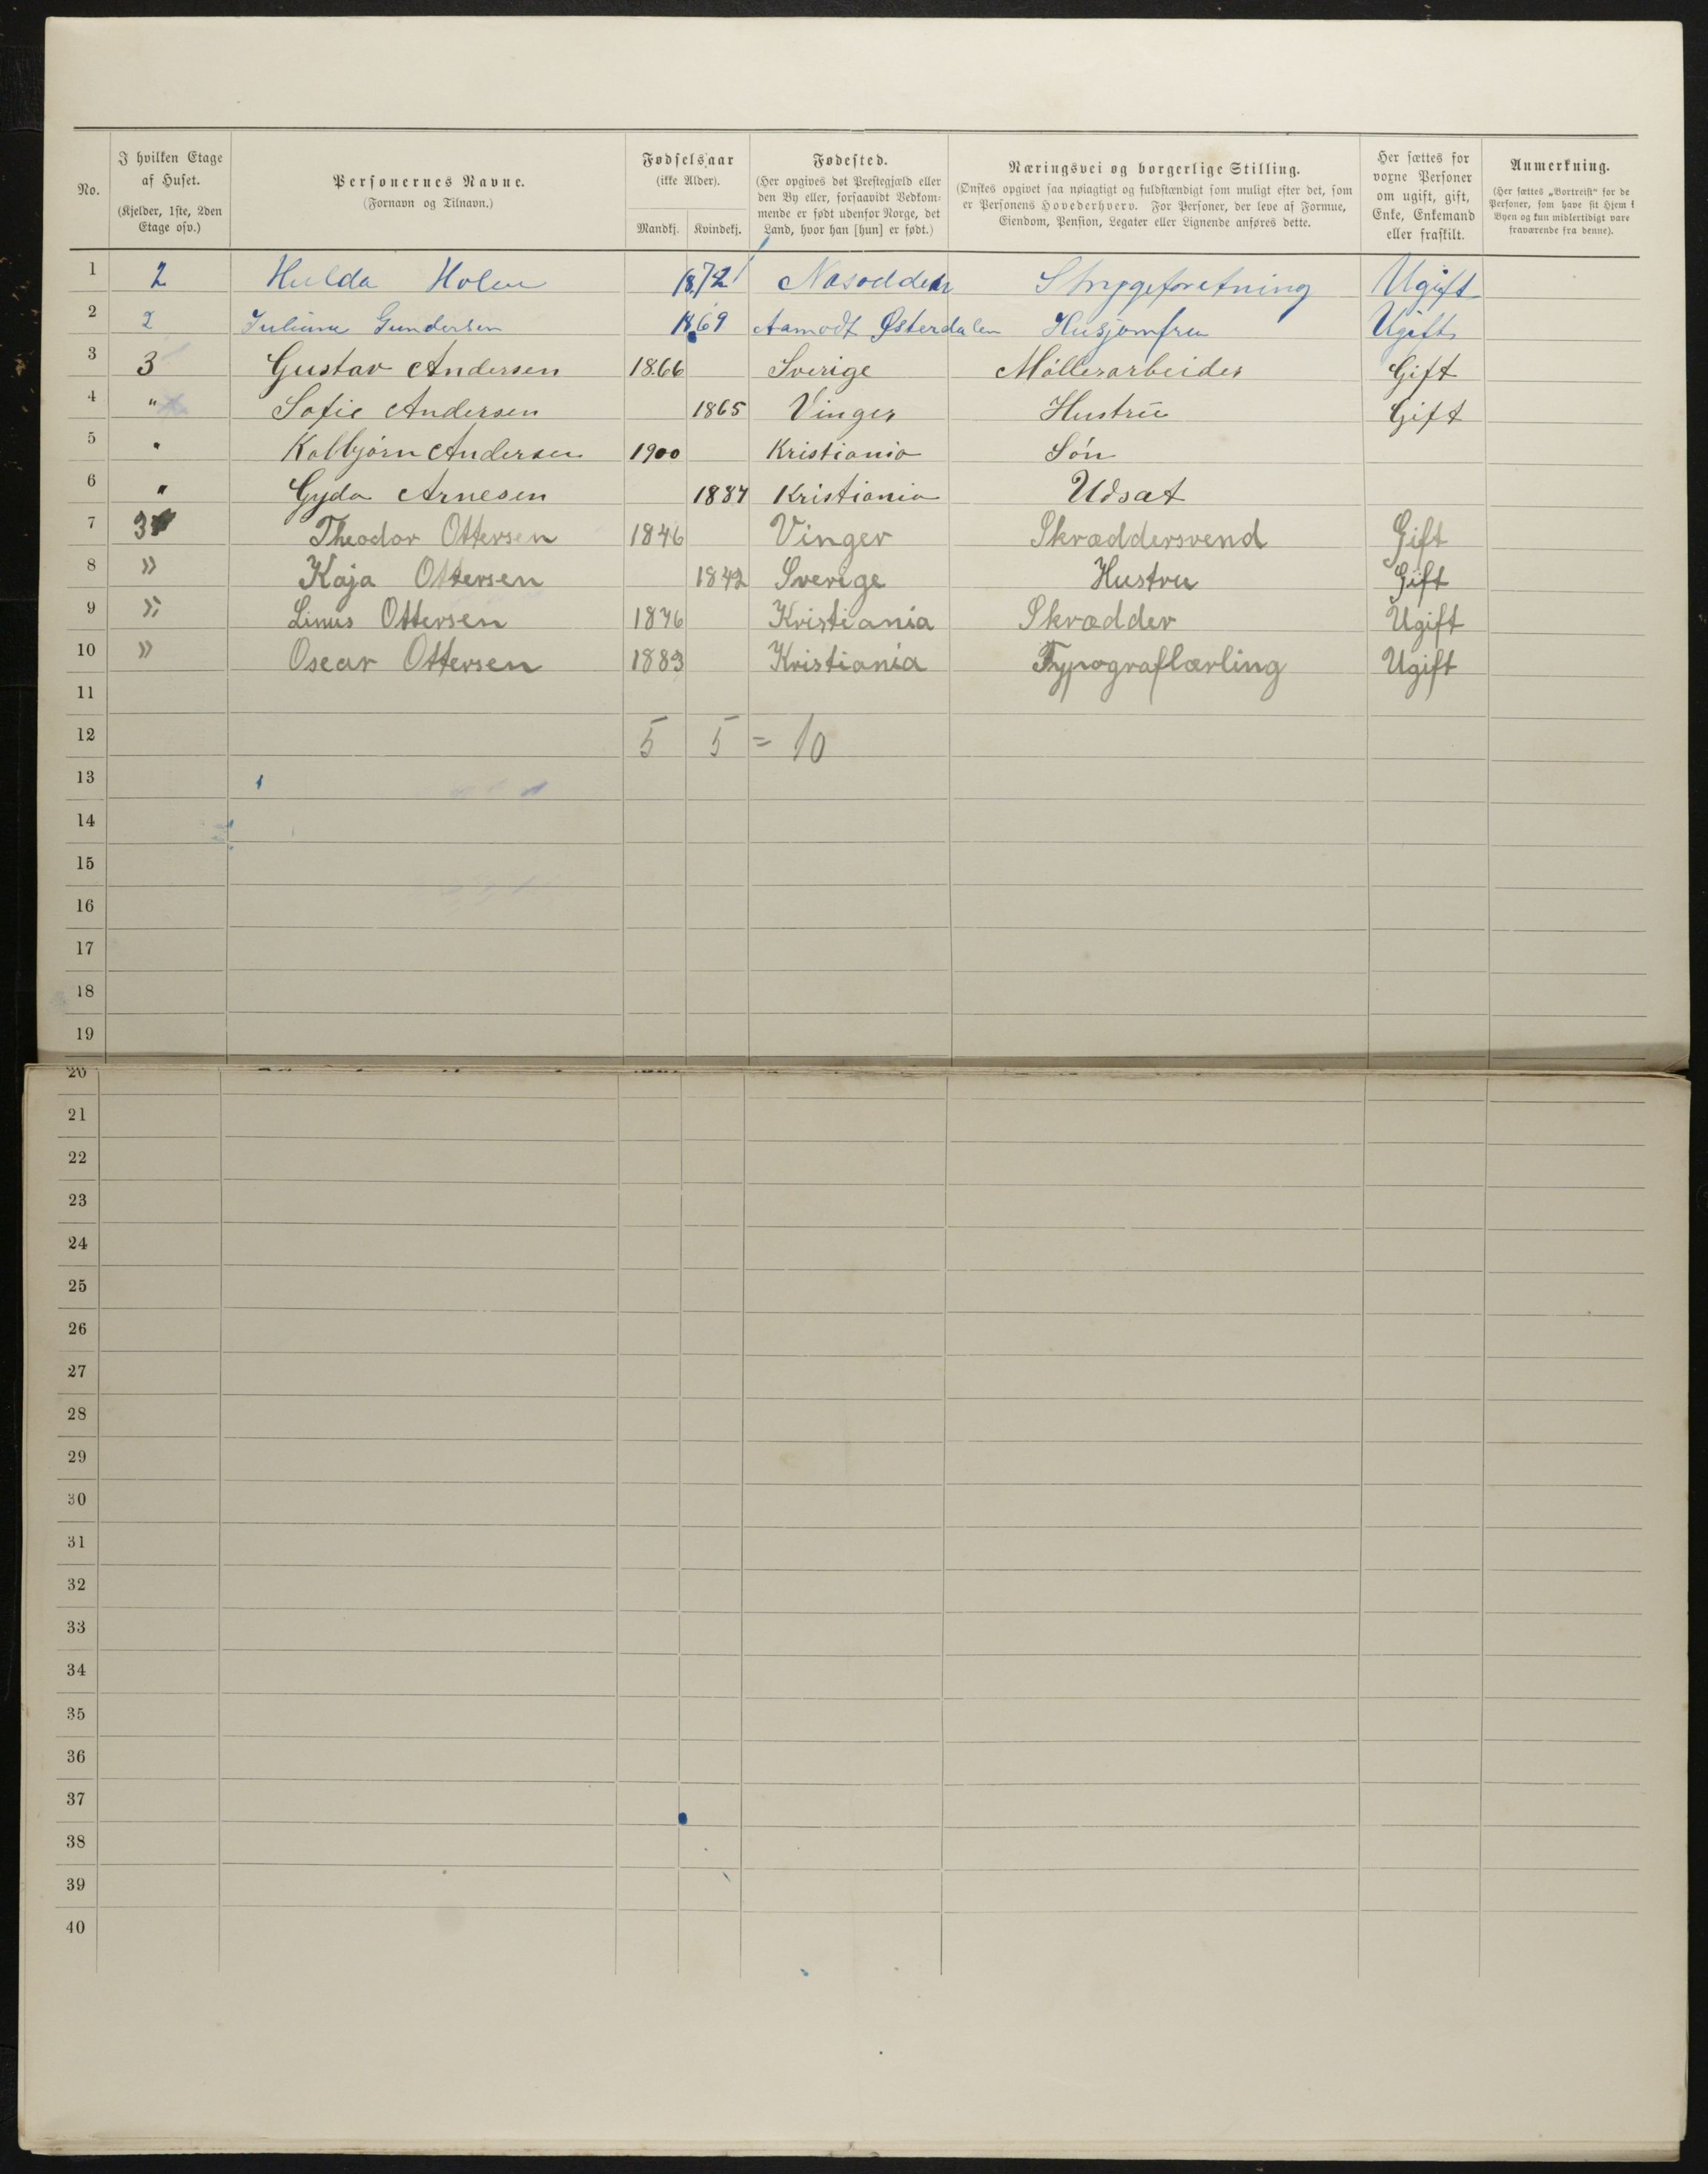 No.
I hvilken Etage af Huset.
(Kjelder, 1ste, 2den Etage osv.)
Personernes Navne.
(Fornavn og Tilnavn.)
Fødselsaar
(ikke Alder).
Mandkj. Kvindekj.
Fødested.
(Her opgives det Prestegjæld eller
den By eller, forsaavidt Vedkom-
mende er født udenfor Norge, det
Land, hvor han [hun] er født.)
Næringsvei og borgerlige Stilling.
(Ønskes opgivet saa nøiagtigt og fuldstændigt som muligt efter det, som
er Personens Hovederhverv. For Personer, der leve af Formue,
Eiendom, Pension, Legater eller Lignende anføres dette.
Her sættes for
voxne Personer
om ugift, gift,
Enke, Enkemand
eller fraskilt.
Anmerkning.
(Her sættes „Bortreist“ for de
Personer, som have sit Hjem i
Byen og kun midlertidigt være
fraværende fra denne).
1 2 Hulda Holm 1872 Nasodden Strygeforetning Ugift
2 2 Juliane Gundersen 1869 Aamodt Østerdalen Husjomfru Ugift
3 3 Gustav Andersen 1866 Sverige Møllerarbeider Gift
4 " Sofie Andersen 1865 Vinger Hustru Gift
5 " Kolbjørn Andersen 1900 Kristiania Søn
6 " Gyda Arnesen 1887 Kristiania Udsat
7 3 Theodor Ottersen 1846 Vinger Skræddersvend Gift
8 » Kaja Ottersen 1842 Sverige Hustru Gift
9 » Linus Ottersen 1876 Kristiania Skrædder Ugift
10 » Oscar Ottersen 1883 Kristiania Typograflærling Ugift
11
12 5 5 = 10
13
14
15
16
17
18
19
20
21
22
23
24
25
26
27
28
29
30
31
32
33
34
35
36
37
38
39
40